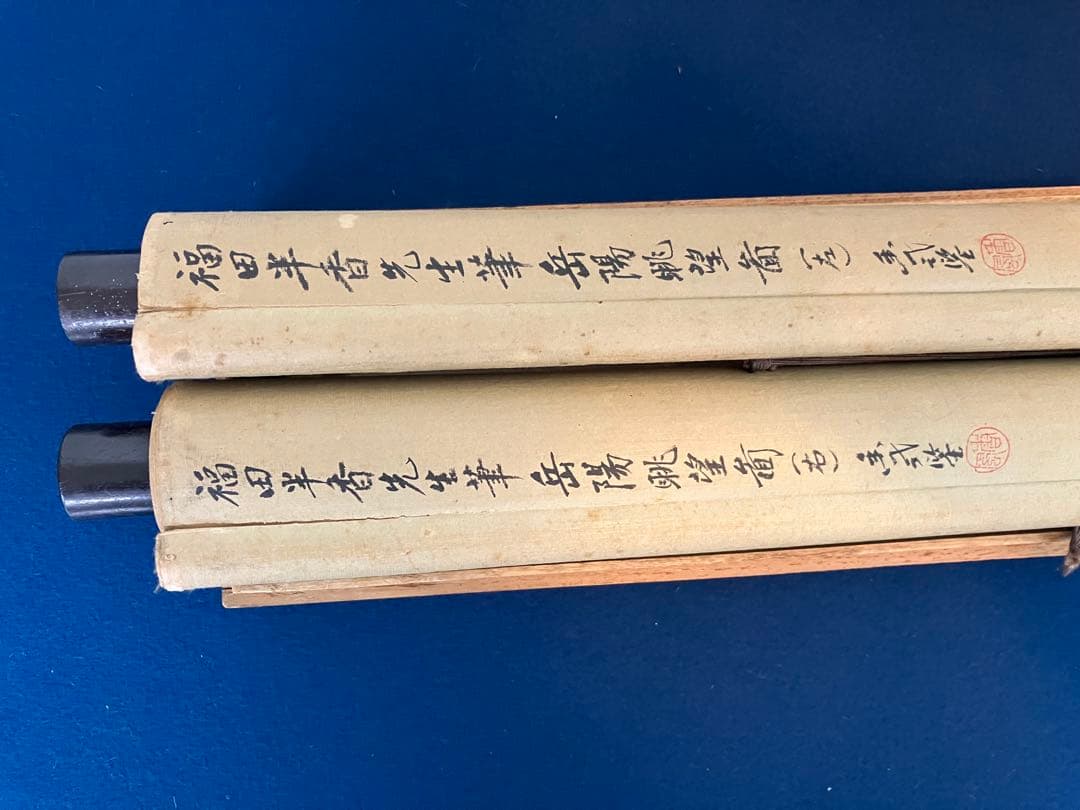 福田半香先生筆岳陽眺望啚 左
福田半香先生筆岳陽眺望啚 右